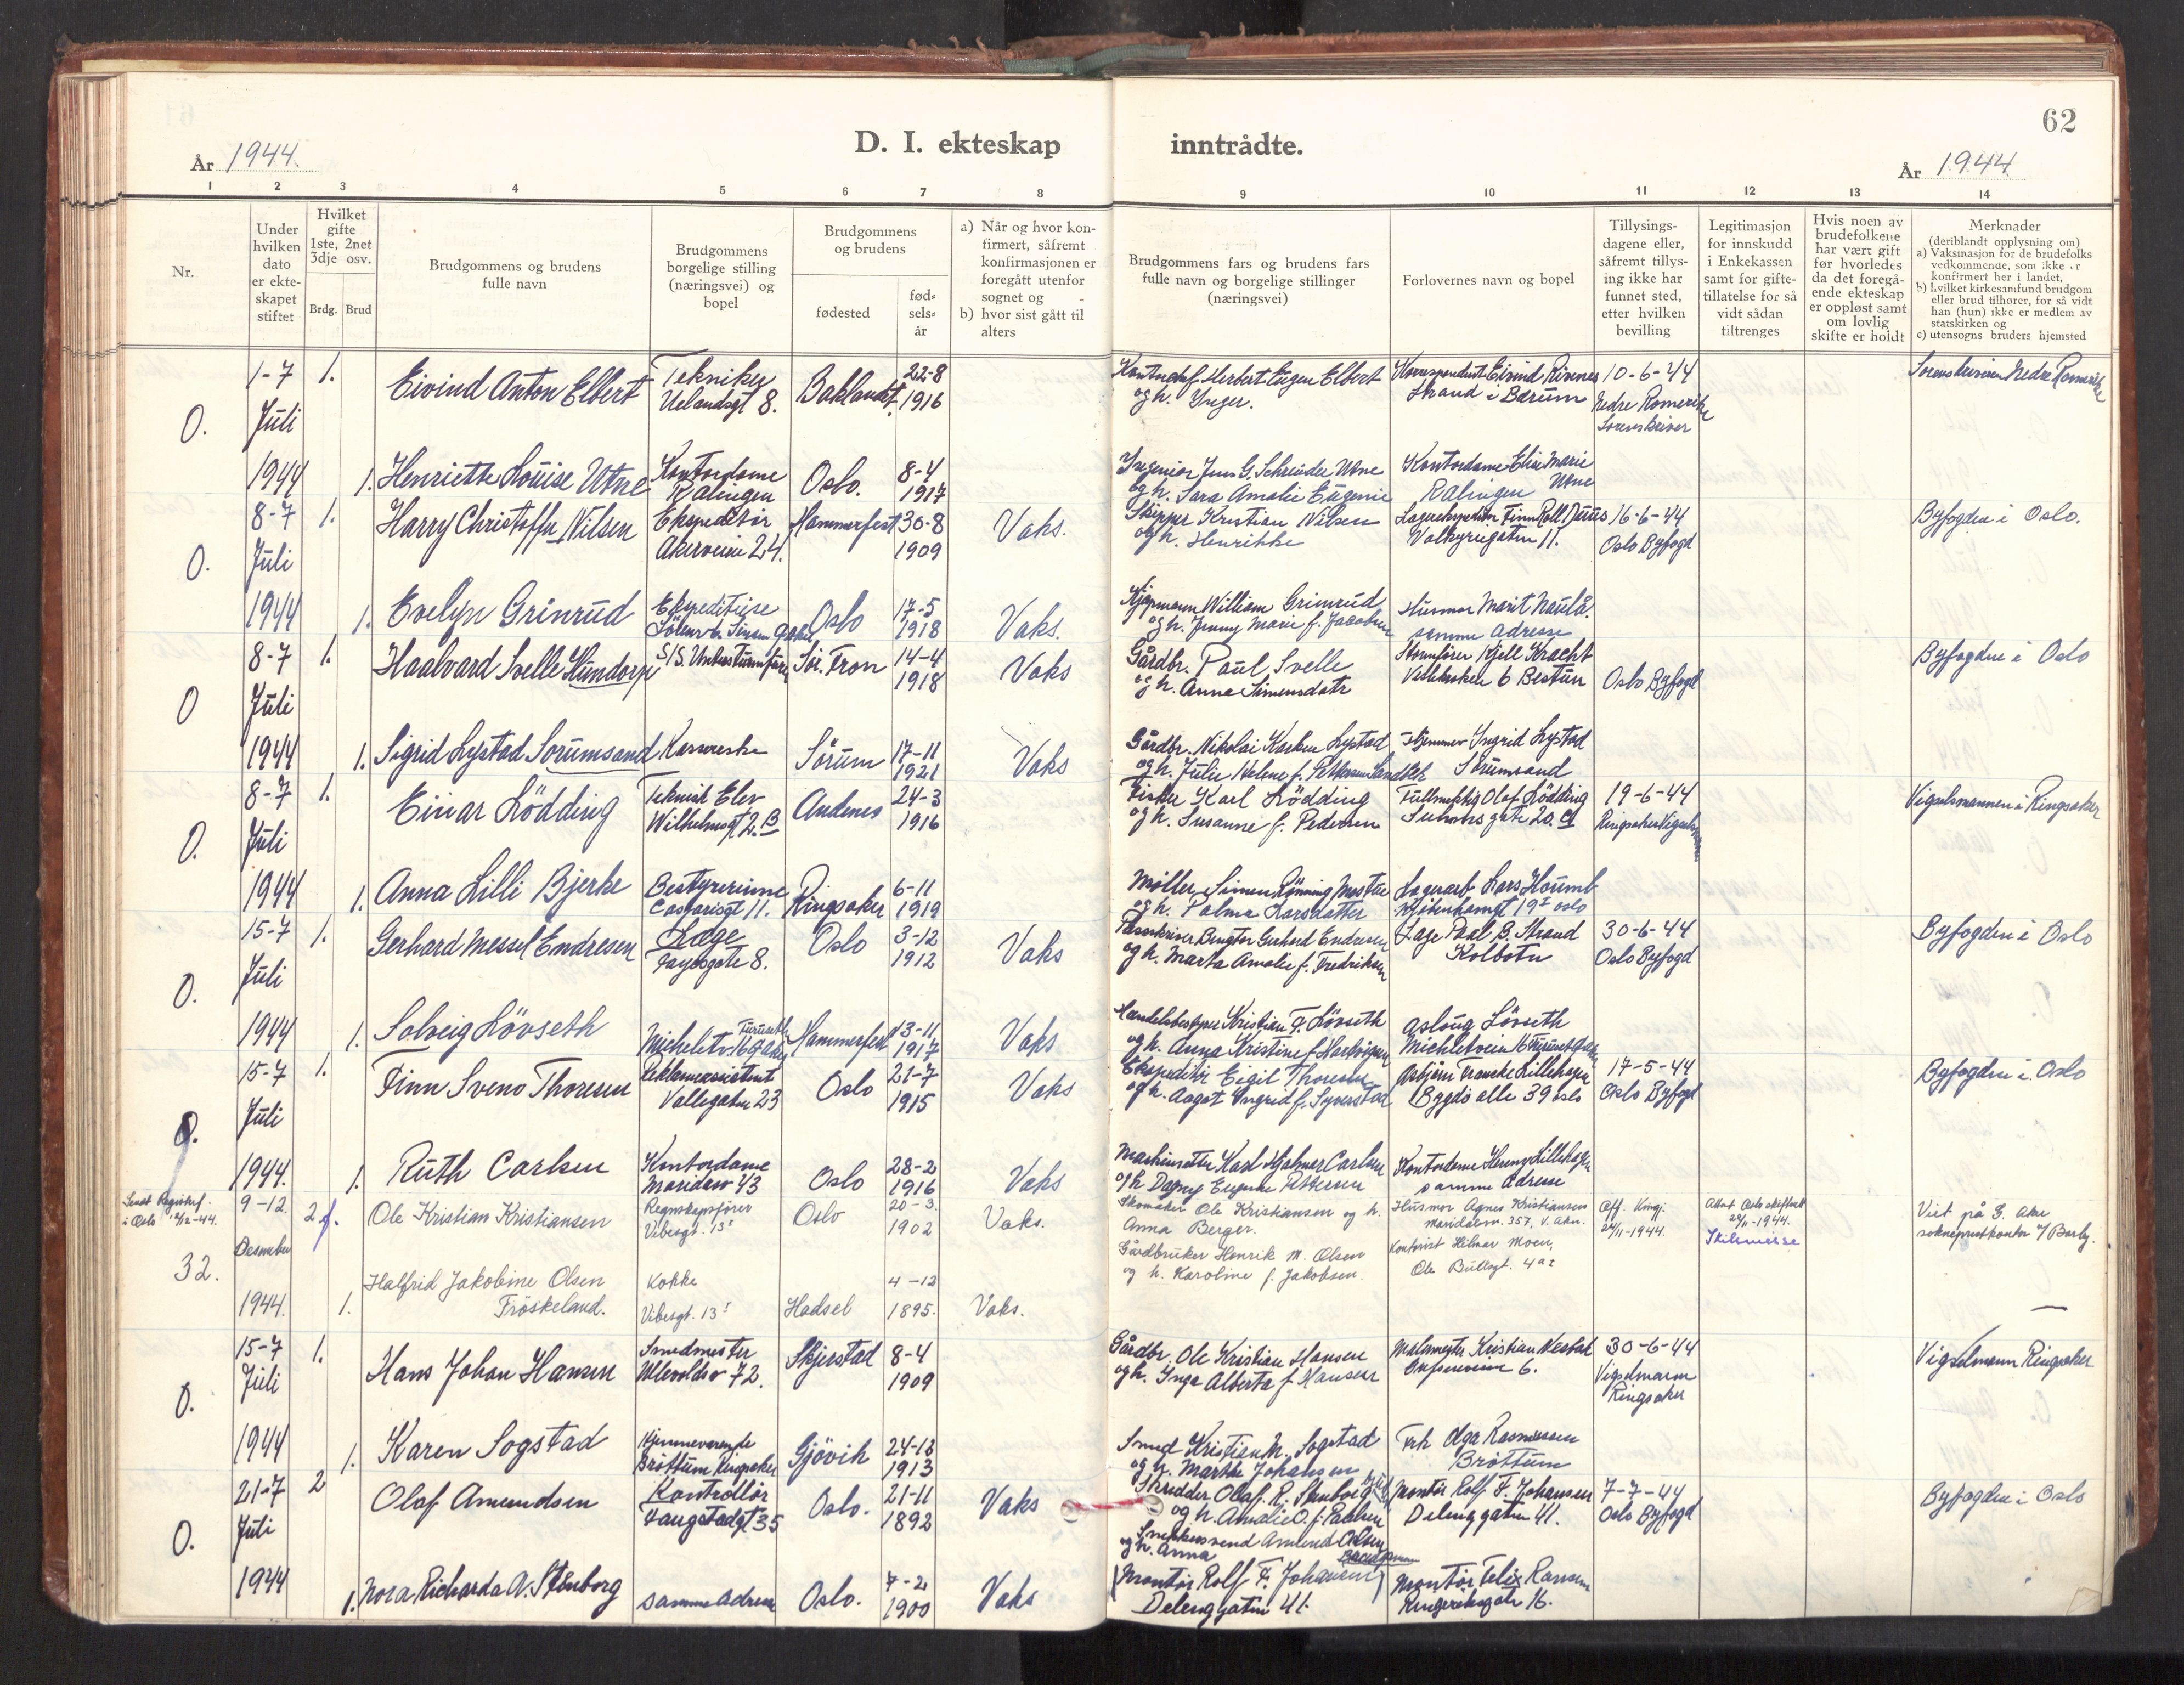 62
År 1944.
D. I. ekteskap inntrådte.
År 1944
1 2 3 4 5 6 7 8 9 10 11 12 13 14
Nr.
Under hvilken dato er ekteskapet stiftet
Hvilket gifte 1ste, 2net 3dje osv.
Brdg. Brud
Brudgommens og brudens fulle navn
Brudgommens borgelige stilling (næringsvei) og bopel
Brudgommens og brudens
fødested
fødselsår
a) Når og hvor konfirmert, såfremt konfirmasjonen er foregått utenfor sognet og
b) hvor sist gått til alters
Brudgommens fars og brudens fars fulle navn og borgelige stillinger (næringsvei)
Forlovernes navn og bopel
Tillysingsdagene eller, såfremt tillysing ikke har funnet sted, etter hvilken bevilling
Legitimasjon for innskudd i Enkekassen samt for giftetillatelse for så vidt sådan tiltrenges
Hvis noen av brudefolkene har vært gift før hvorledes da det foregående ekteskap er oppløst samt om lovlig skifte er holdt
Merknader
(deriblandt opplysning om)
a) Vaksinasjon for de brudefolks vedkommende, som ikke er konfirmert her i landet,
b) hvilket kirkesamfund brudgom eller brud tilhører, for så vidt han (hun) ikke er medlem av statskirken og
c) utensogns bruders hjemsted
O. 1-7 Juli 1944
1. Eivind Anton Elbert Tekniker Uelandsgt 8. Baklandet 22-8 1916
Herbert Eugen Elbert og h. Inger.
Eivind Rivenes Strand i Bærum
10-6-44 Nedre Romerike Sorenskriver
Sorenskriveren Nedre Romerike
1. Henriette Louise Utne Kontordame Rælingen Oslo. 8-4 1917
Ingeniør Jens G. Schreuder Utne og h. Sara Amalie Eugenie
Kontordame Elise Marie Utne Rælingen
O. 8-7 Juli 1944
1. Harry Christoffer Nilsen Ekspeditør Akerveien 24. Hammerfest 30-8 1909 Vaks.
Skipper Kristian Nilsen og h. Henrikke
Valkyriegaten 11.
16-6-44 Oslo Byfogd
Byfogden i Oslo.
1. Evelyn Grinrud Ekspeditrise Oslo 17-5 1918 Vaks.
Kjøpmann William Grinrud og h. Jenny Marie f. Jacobsen
Husmor Marit Naulå. samme adresse
O 8-7 Juli 1944
1. Haalvard Svelle Hundorp S/S. Untersturmführer Sør. Fron 14-4 1918 Vaks
Gårdbr. Paul Svelle og h. Anna Simensdatr
Kjell Kracht 6 Bestun
Oslo Byfogd
Byfogden i Oslo
1. Sigrid Lystad Sørumsand Kassererske Sørum 17-11 1921 Vaks
Gårdbr. Nikolai Karsten Lystad og h. Julie Helene f. Pettersen
Ingrid Lystad Sørumsand
O. 8-7 Juli 1944
1. Einar Lødding Teknisk Elev Wilhelmsgt 2. B Andenes 24-3 1916
Fisker Karl Lødding og h. Susanne f. Pedersen
Fullmektig Olaf Lødding Suhmsgate 20.
19-6-44
Vigselsmannen i Ringsaker
1. Anna Lilli Bjerke Bestyrerinne Casparisgt 11. Ringsaker 6-11 1919
Møller Simen og h. Palma Larsdatter
Lagerarb Lars Houmb Kjøbenhavngt 19 Oslo
O. 15-7 Juli 1944
1. Gerhard Messel Endresen Læge Fayesgate 8. Oslo 3-12 1912 Vaks
Gerhard Endresen og h. Marta Amalie f. Fredriksen
Læge Paal B. Strand Kolbotn
30-6-44 Oslo Byfogd
Byfogden i Oslo
1. Solveig Løvseth Furuset Hammerfest 13-11 1917 Vaks
Handelsbestyrer Kristian F. Løvseth og h. Anna Kristine f. Hartvigsen
Aslaug Løvseth
O. 15-7 Juli 1944.
1. Finn Sveno Thoresen Reklameassistent Vallegaten 23 Oslo 21-7 1915 Vaks
Ekspeditør Eigil Thoresen og h. Aagot Ingrid f. Syverstad
Asbjørn Francke Lillehagen Bygdø alle 39 Oslo
17-5-44 Oslo Byfogd
Byfogden i Oslo
1. Ruth Carlsen Kontordame Maridalsv 43 Oslo 28-2 1916 Vaks
Karl Hjalmar Carlsen og h Dagny Eugenie Pettersen
Kontordame Henny Lillehagen samme adresse
Sendt Registerf. i Oslo 12/12-44.
32. 9-12. Desember 1944.
2 f. Ole Kristian Kristiansen Regnskapsfører Vibesgt. 13 Oslo 20-3. 1902 Vaks.
Skomaker Ole Kristiansen og h. Anna Berger.
Husmor Agnes Kristiansen Maridalsv. 357, V. Aker.
24/11-1944.
Attest Oslo skifterett 24/11-1944. Skilsmisse
Viet på Ø. Aker sokneprestkontor v/ Barby.
1. Halfrid Jakobine Olsen Frøskeland. Kokke Vibesgt. 13 Hadsel 4-12 1895. Vaks.
Gårdbruker Henrik M. Olsen og h. Karoline f. Jakobsen.
Kontorist Hilmar Moen, Ole Bullsgt. 4
O. 15-7 Juli 1944
1. Hans Johan Hansen Smedmester Ullevoldsv 72. Skjerstad 8-4 1909
Gårdbr. Ole Kristian Hansen og h. Inga Alberta f Hansen
Malermester Kristian Nestad 6.
30-6-44 Vigselmann Ringsaker
Vigselmann Ringsaker
1. Karen Sogstad Hjemmeværende Brøttum Ringsaker Gjøvik 24-12 1913
Smed Kristian M. Sogstad og h. Marthe Johansen
Frk Olga Rasmussen Brøttum
O. 21-7 Juli 1944
2 Olaf Amundsen Kontrollør Langstadgt 35 Oslo. 21-11 1892 Vaks
Skredder Olaf. R. Stenborg brud og h. Amalie O. f. Paulsen
Montør Rolf F. Johansen Delenggaten 41.
7-7-44 Oslo Byfogd
Byfogden i Oslo
Snekkersvend Amund Olsen og h. Anna Brudgommen
1. Nora Richarda A. Stenborg samme adresse Oslo. 7-2 1900 Vaks
(Montør Rolf F. Johansen) Delenggaten 41.
Montør Felix Ransem Ringeriksgate 16.